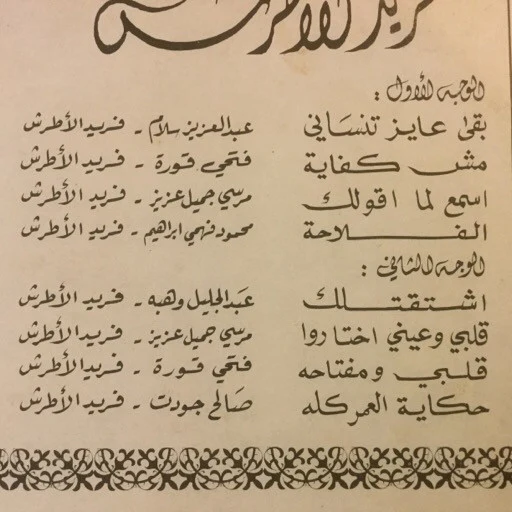 فريد الأطرش
الوجه الأول :
بقى عايز تنساني عبدالعزيز سلام - فريد الأطرش
مش كفاية فتحي قورة - فريد الأطرش
اسمع لما اقولك مرسي جميل عزيز - فريد الأطرش
الفلاحة محمود فهمي ابراهيم - فريد الأطرش
الوجه الثاني :
اشتقتلك عبد الجليل وهبه - فريد الأطرش
قلبي وعيني اختاروا مرسي جميل عزيز - فريد الأطرش
قلبي ومفتاحه فتحي قورة - فريد الأطرش
حكاية العمر كله صالح جودت - فريد الأطرش